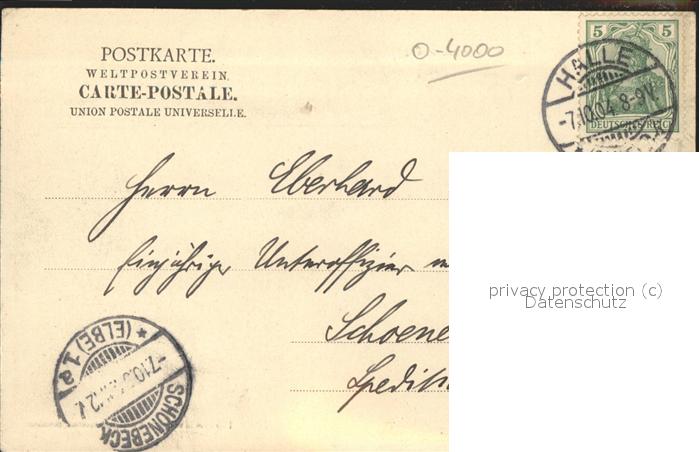 POSTKARTE.
WELTPOSTVEREIN.
CARTE-POSTALE.
UNION POSTALE UNIVERSELLE.
O-4000
5 5
DEUTSCHES REICH
HALLE
-7.10.04. 8-9V.
Herrn Eberhard
Einjähriger Unteroffizier
privacy protection (c)
Datenschutz
Schoene
Spedit
SCHÖNEBECK
(ELBE) 1a
-7.10.